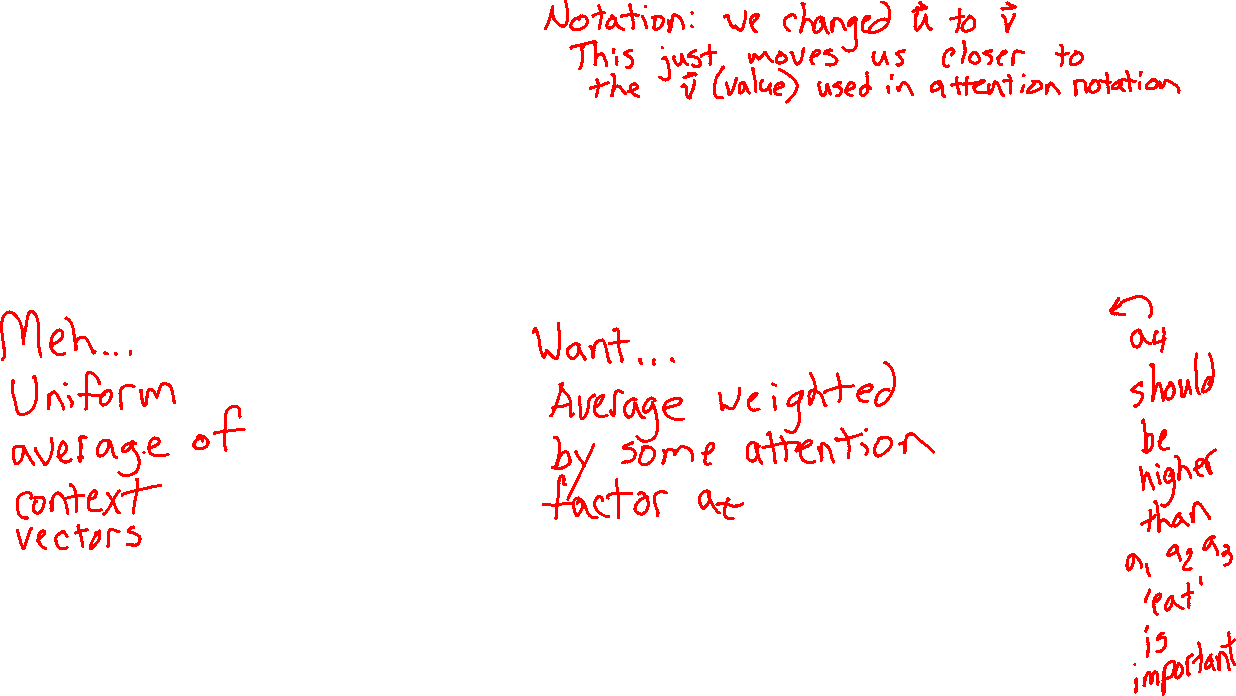 Notation: we changed u⃗ to v⃗
This just moves us closer to
the v⃗ (value) used in attention notation
Meh...
Uniform
average of
context
vectors
Want...
Average weighted
by some attention
factor aₜ
a₄
should
be
higher
than
a₁ a₂ a₃
'eat'
is
important